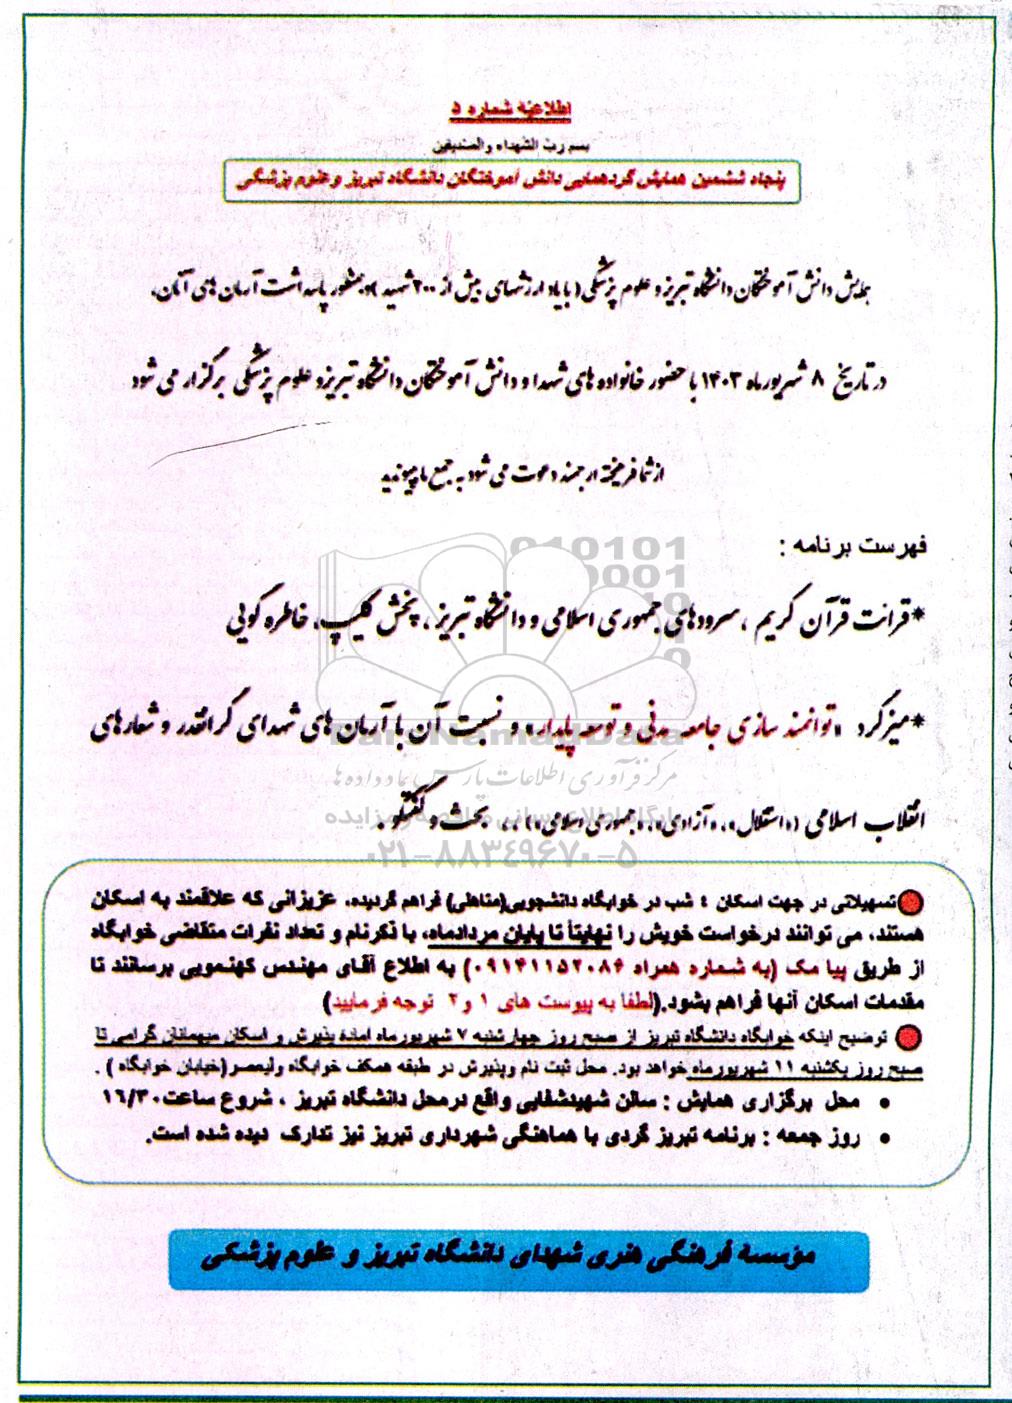 اطلاعیه شماره ۵
بسم رب الشهداء والصدیقین
پنجاه ششمین همایش گردهمایی دانش آموختگان دانشگاه تبریز و علوم پزشکی
همایش دانش آموختگان دانشگاه تبریز و علوم پزشکی (با یاد ارزشهای بیش از ۲۰۰ شهید) و بمنظور پاسداشت آرمان های آنان،
در تاریخ ۸ شهریورماه ۱۴۰۳ با حضور خانواده های شهدا و دانش آموختگان دانشگاه تبریز و علوم پزشکی برگزار می شود
از شما فرهیخته ارجمند دعوت می شود به جمع ما بپیوندید
فهرست برنامه :
*قرائت قرآن کریم ، سرودهای جمهوری اسلامی و دانشگاه تبریز ، پخش کلیپ، خاطره گویی
*میزگرد «توانمند سازی جامعه مدنی و توسعه پایدار» و نسبت آن با آرمان های شهدای گرانقدر و شعارهای
انقلاب اسلامی («استقلال»، «آزادی»، «جمهوری اسلامی») ، بحث و گفتگو .
تسهیلاتی در جهت اسکان ٤ شب در خوابگاه دانشجویی(متاهلی) فراهم گردیده، عزیزانی که علاقمند به اسکان
هستند، می توانند درخواست خویش را نهایتاً تا پایان مردادماه، با ذکرنام و تعداد نفرات متقاضی خوابگاه
از طریق پیا مک (به شماره همراه ۰۹۱۴۱۱۵۲۰۸۴) به اطلاع آقای مهندس کهنمویی برسانند تا
مقدمات اسکان آنها فراهم بشود.(لطفا به پیوست های ۱ و۲ توجه فرمایید)
توضیح اینکه خوابگاه دانشگاه تبریز از صبح روز چهارشنبه ۷ شهریورماه آمادۀ پذیرش و اسکان میهمانان گرامی تا
صبح روز یکشنبه ۱۱ شهریورماه خواهد بود. محل ثبت نام وپذیرش در طبقه همکف خوابگاه ولیعصر(خیابان خوابگاه ) .
• محل برگزاری همایش : سالن شهیدشفایی واقع درمحل دانشگاه تبریز ، شروع ساعت۱۶/۳۰
• روز جمعه : برنامه تبریز گردی با هماهنگی شهرداری تبریز نیز تدارک دیده شده است.
مؤسسۀ فرهنگی هنری شهدای دانشگاه تبریز و علوم پزشکی
ParsNamadData
مرکز فرآوری اطلاعات پارس نماد داده ها
پایگاه اطلاع رسانی مناقصه و مزایده
۰۲۱-۸۸۳۴۹۶۷۰-۵